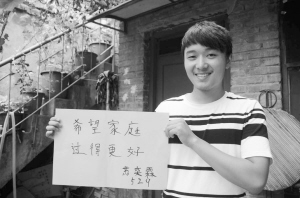 希望家庭
过得更好
524